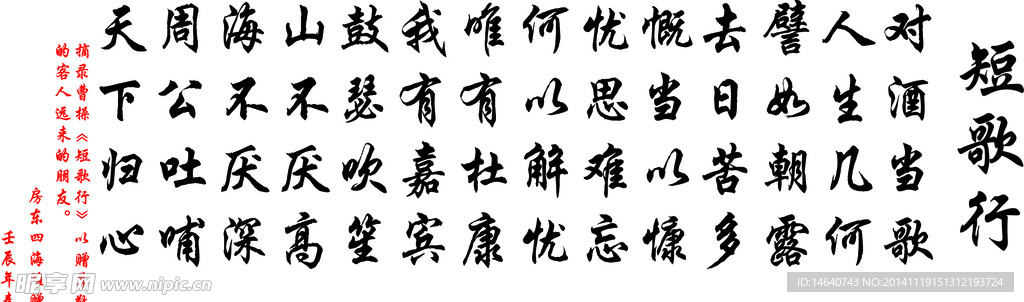 短歌行
对酒当歌
人生几何
譬如朝露
去日苦多
慨当以慷
忧思难忘
何以解忧
唯有杜康
我有嘉宾
鼓瑟吹笙
山不厌高
海不厌深
周公吐哺
天下归心
摘录曹操《短歌行》以赠
的客人远来的朋友。
房东四海
壬辰年
昵享网 www.nipic.cn
ID:14640743 NO:20141119151312193724